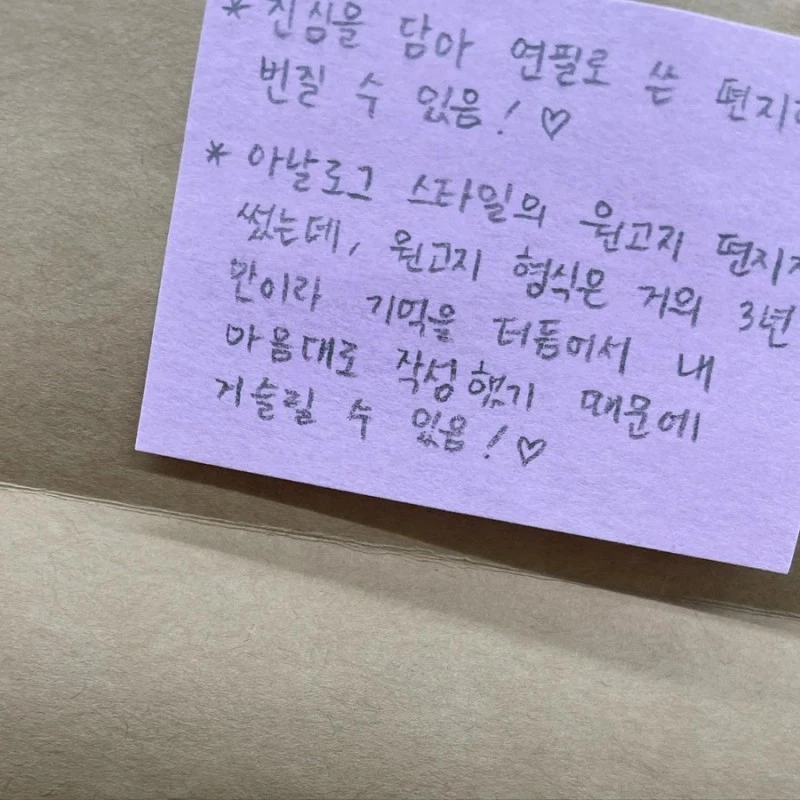 * 진심을 담아 연필로 쓴 편지
번질 수 있음! ♡
* 아날로그 스타일의 원고지 편지
썼는데, 원고지 형식은 거의 3년
만이라 기억을 더듬어서 내
마음대로 작성했기 때문에
거슬릴 수 있음! ♡